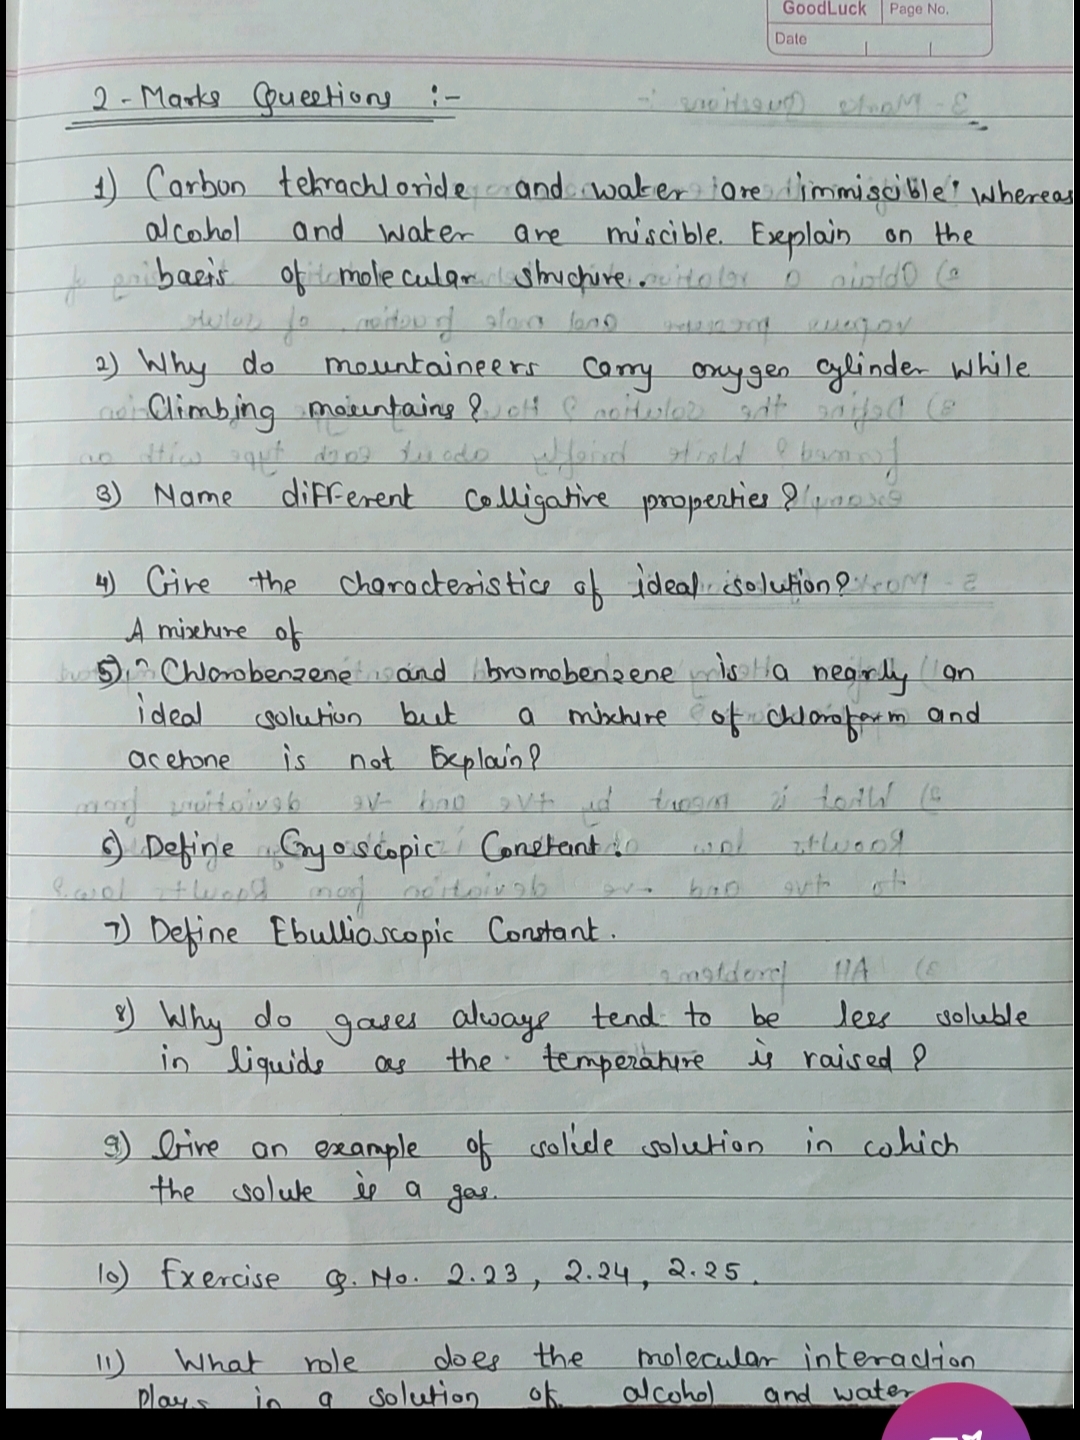 GoodLuck Page No.
Date
2 - Marks Questions :-
1) Carbon tetrachloride and water are 'immiscible' whereas
alcohol and water are miscible. Explain on the
basis of molecular structure.
2) Why do mountaineers carry oxygen cylinder while
Climbing mountains?
3) Name different Colligative properties?
4) Give the characteristics of ideal solution?
A mixture of
5) Chlorobenzene and bromobenzene is a nearly an
ideal solution but a mixture of chloroform and
acetone is not Explain?
6) Define Cryoscopic Constant.
7) Define Ebullioscopic Constant.
8) Why do gases always tend to be less soluble
in liquids as the temperature is raised?
9) Give an example of solide solution in which
the solute is a gas.
10) Exercise Q. No. 2.23, 2.24, 2.25.
11) What role does the molecular interaction
plays in a solution of alcohol and water